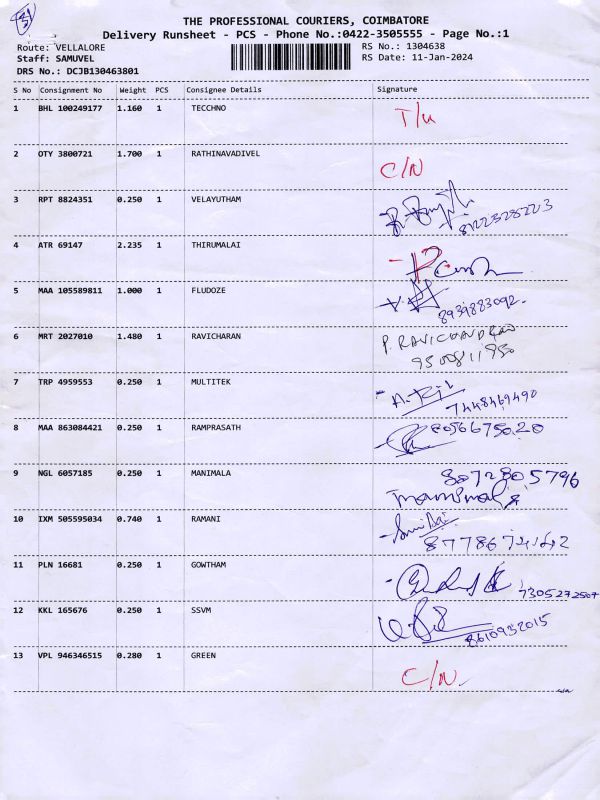 THE PROFESSIONAL COURIERS, COIMBATORE
Delivery Runsheet - PCS - Phone No.:0422-3505555 - Page No.:1
Route: VELLALORE RS No.: 1304638
Staff: SAMUVEL RS Date: 11-Jan-2024
DRS No.: DCJB130463801
S No Consignment No Weight PCS Consignee Details Signature
1 BHL 100249177 1.160 1 TECCHNO T/u
2 OTY 3800721 1.700 1 RATHINAVADIVEL C/N
3 RPT 8824351 0.250 1 VELAYUTHAM
4 ATR 69147 2.235 1 THIRUMALAI
5 MAA 105589811 1.000 1 FLUDOZE
8939883092.
6 MRT 2027010 1.480 1 RAVICHARAN P. RAVICHANDRAN
9500811950
7 TRP 4959553 0.250 1 MULTITEK
7448469490
8 MAA 863084421 0.250 1 RAMPRASATH 8056675020
9 NGL 6057185 0.250 1 MANIMALA 8072805796
10 IXM 505595034 0.740 1 RAMANI
11 PLN 16681 0.250 1 GOWTHAM
7305272507
12 KKL 165676 0.250 1 SSVM
8610932015
13 VPL 946346515 0.280 1 GREEN C/N.